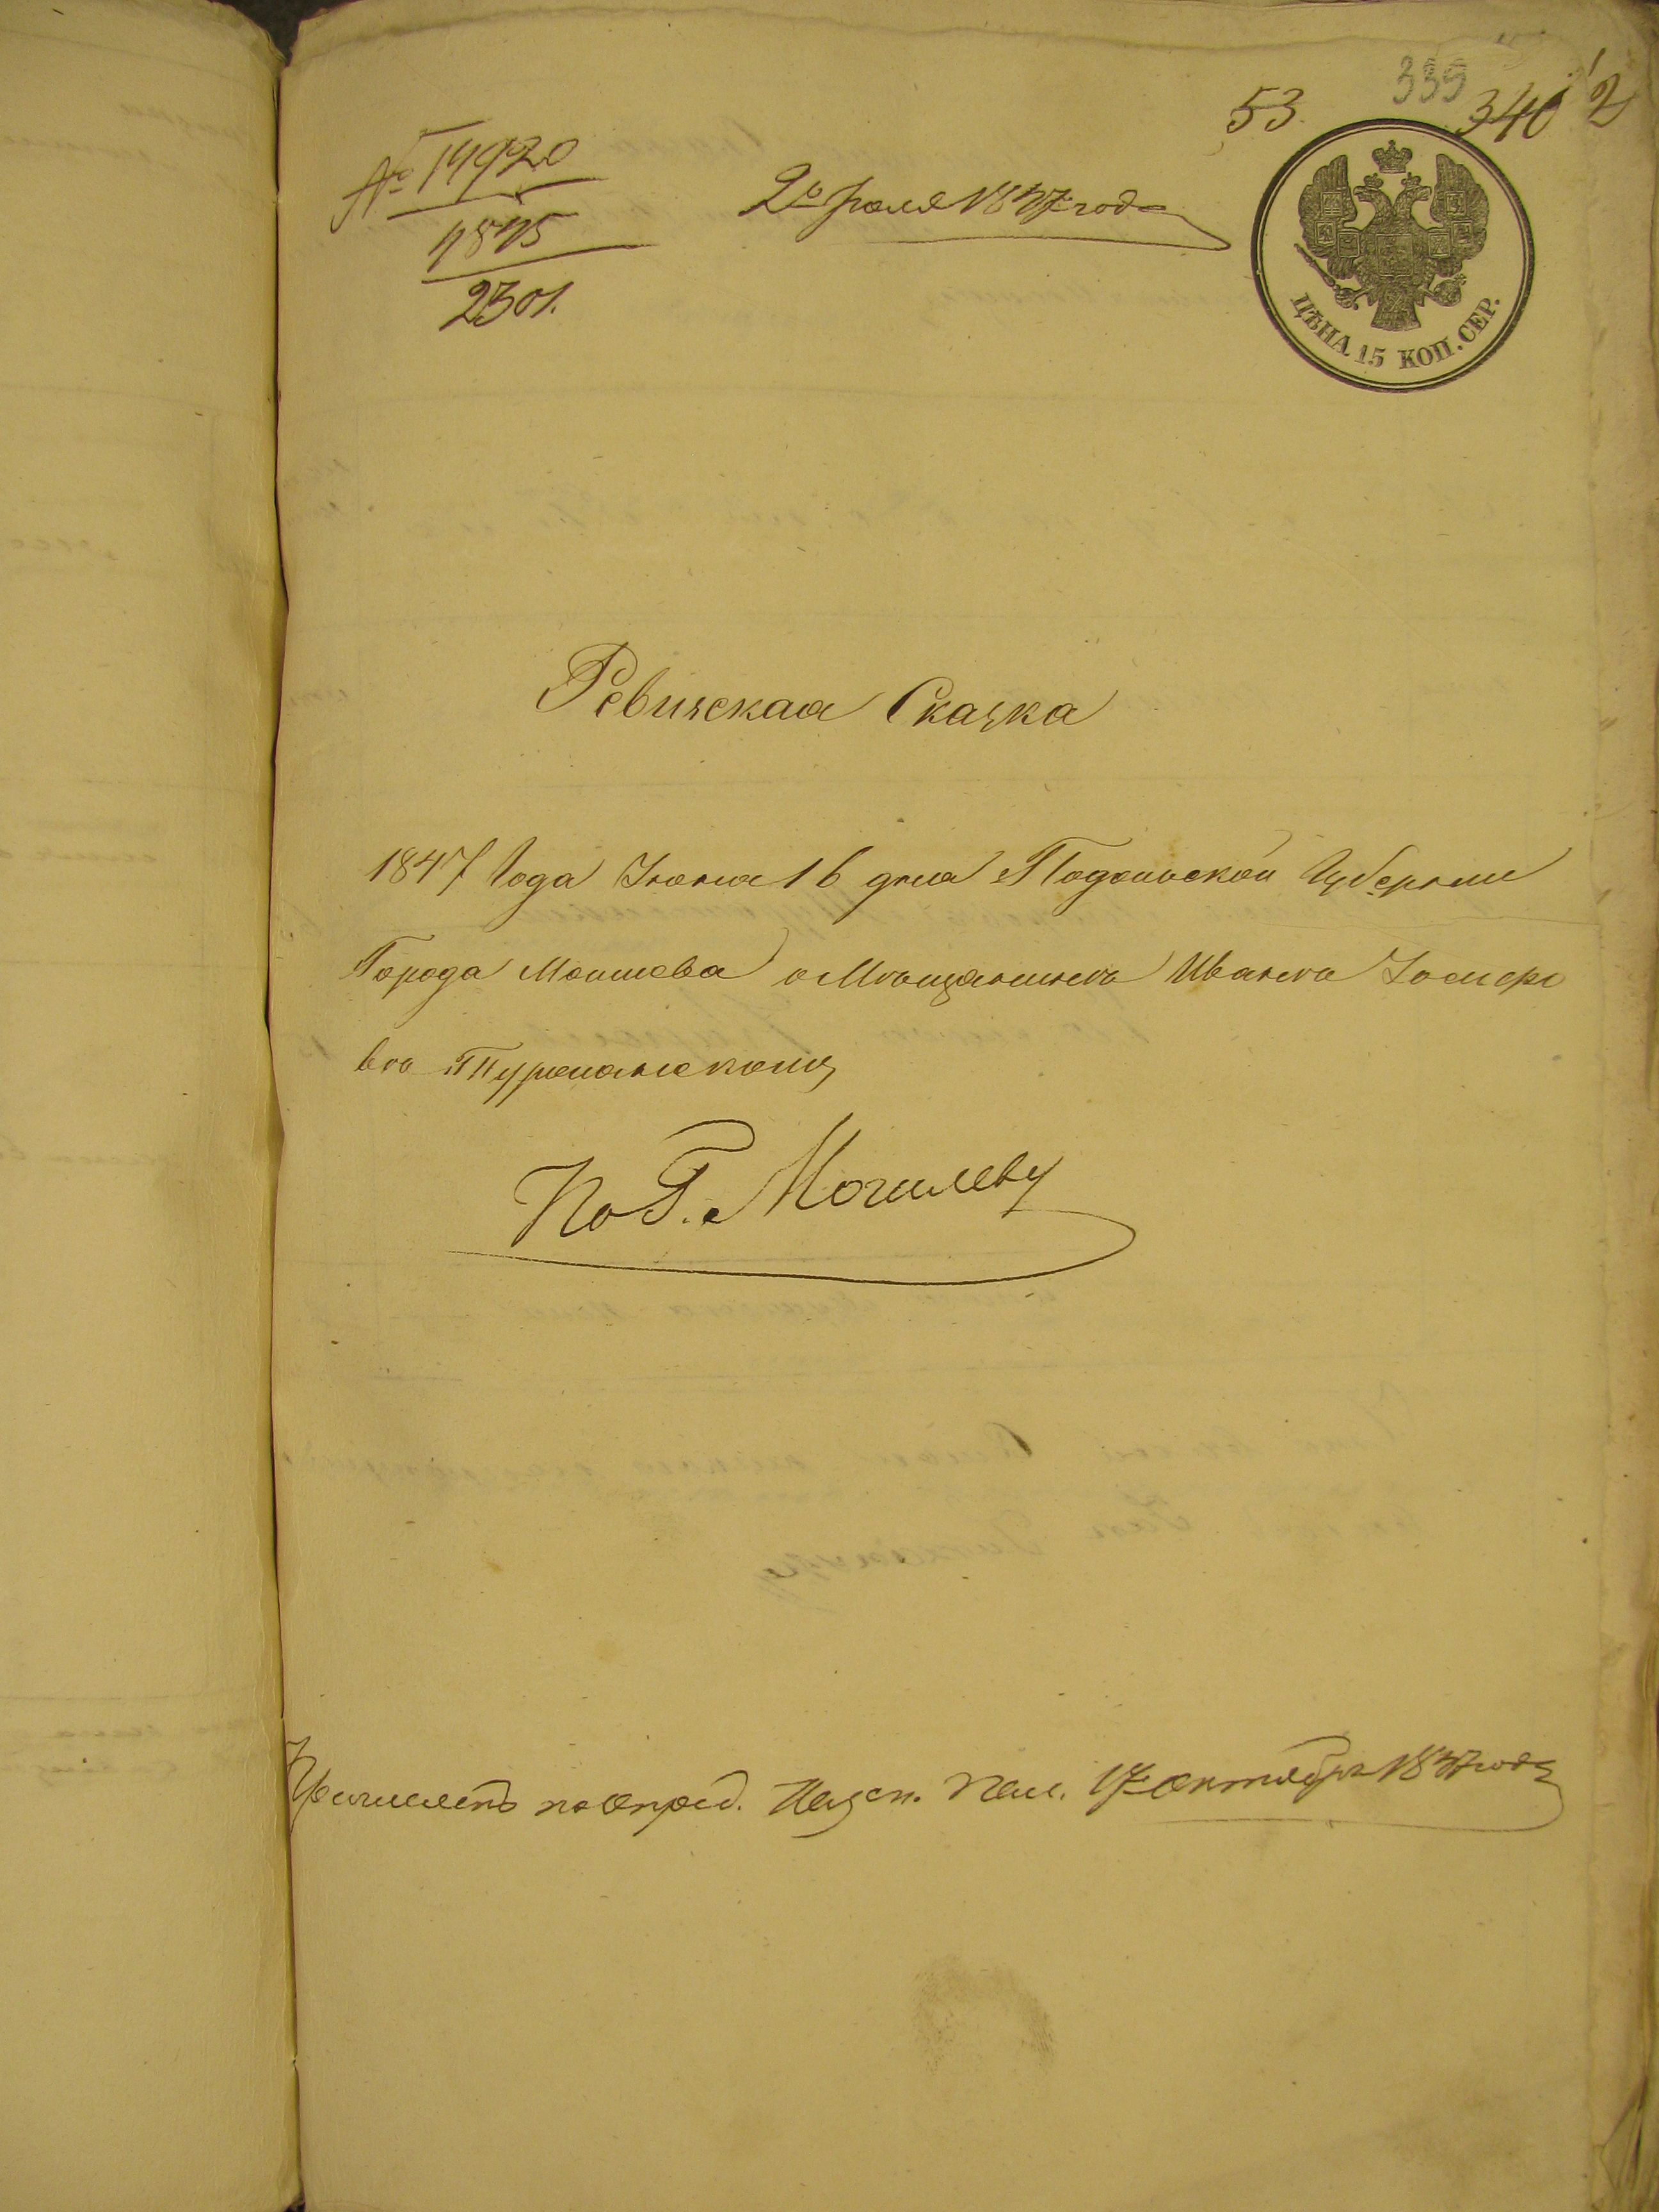 53. 339 340 2
№ 14920
1875
2301.
2го Іюля 1847 года
ЦѢНА 15 КОП. СЕР.
Ревизская Сказка
1847 Года Іюня 16 дня Подольской Губерніи
Города Могилева о Мѣщанинѣ Иванѣ
По Г. Могилеву
Причисленъ по опред. Казен. Пал. 17 октября 1847 года